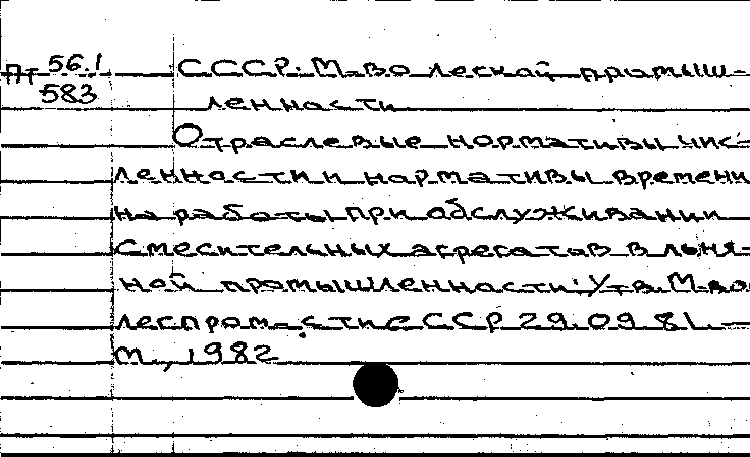 Пт 56.1 СССР. М-во легкой промыш-
583 ленности
Отраслевые нормативы чис-
ленности и нормативы времени
на работы при обслуживании
смесительных агрегатов в льня-
ной промышленности: Утв. М-во
леспром-сти СССР 29.09.81. —
М., 1982